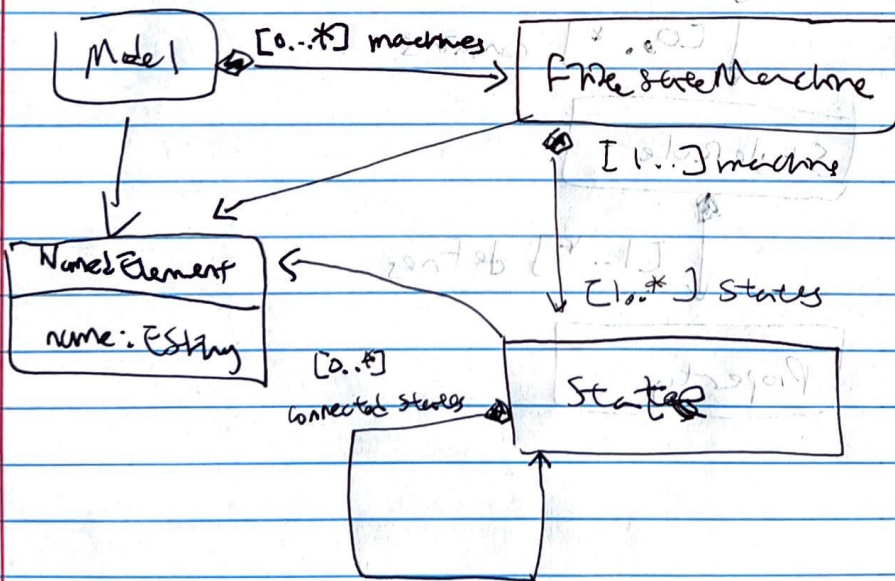 Model
[0...*] machines
FiniteStateMachine
[1..] machine
NamedElement
name: EString
[1..*] States
[0..*]
connected states
State